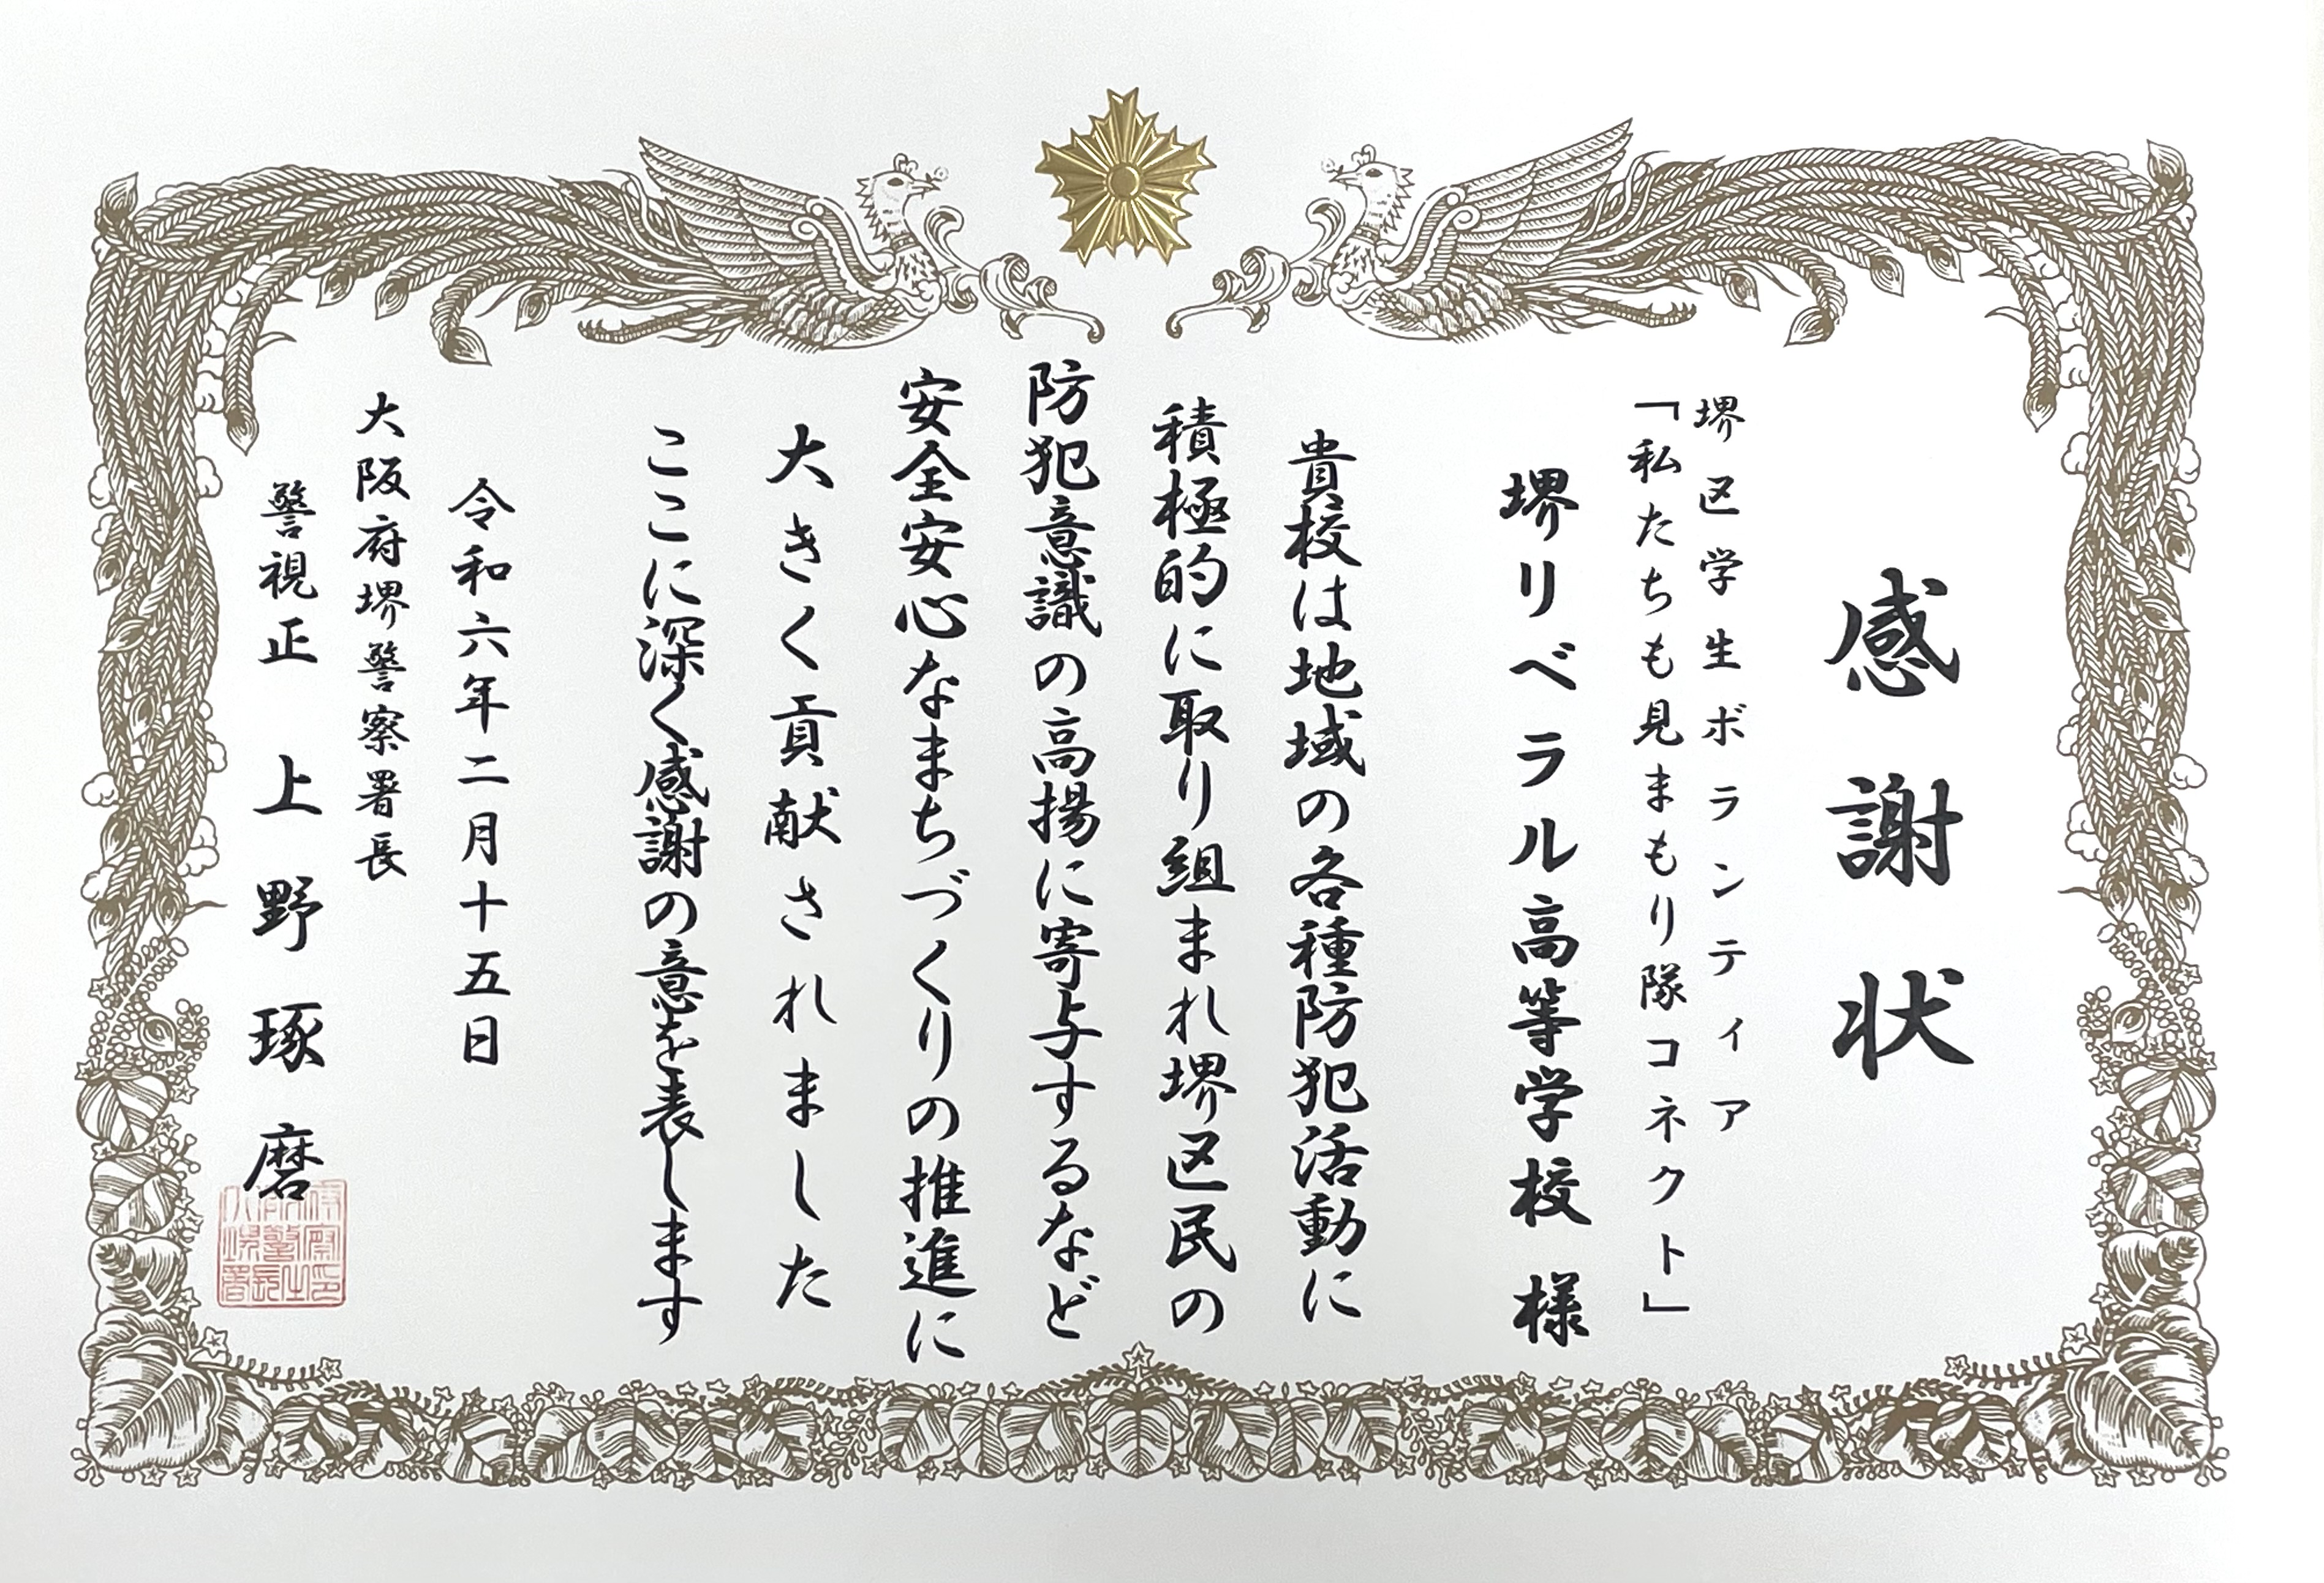 感謝状
堺区学生ボランティア
「私たちも見まもり隊コネクト」
堺リベラル高等学校 様
貴校は地域の各種防犯活動に
積極的に取り組まれ堺区民の
防犯意識の高揚に寄与するなど
安全安心なまちづくりの推進に
大きく貢献されました
ここに深く感謝の意を表します
令和六年二月十五日
大阪府堺警察署長
警視正 上野琢磨